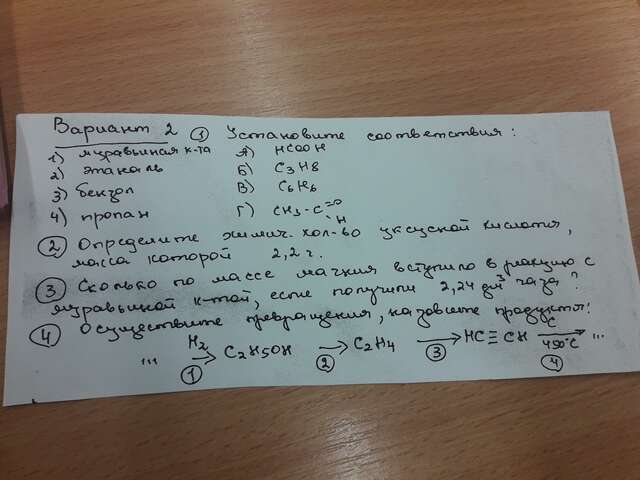 Вариант 2 ① Установите соответствия:
1) муравьиная к-та А) HCOOH
2) этаналь Б) C3H8
3) бензол В) C6H6
4) пропан Г) CH3-C=O
H
② Определите химич. кол-во уксусной кислоты,
масса которой 2,2 г.
③ Сколько по массе магния вступило в реакцию с
муравьиной к-той, если получили 2,24 дм³ газа?
④ Осуществите превращения, назовите продукты!
... H2 → C2H5OH → C2H4 → HC≡CH C → ...
① ② ③ 450°C ④